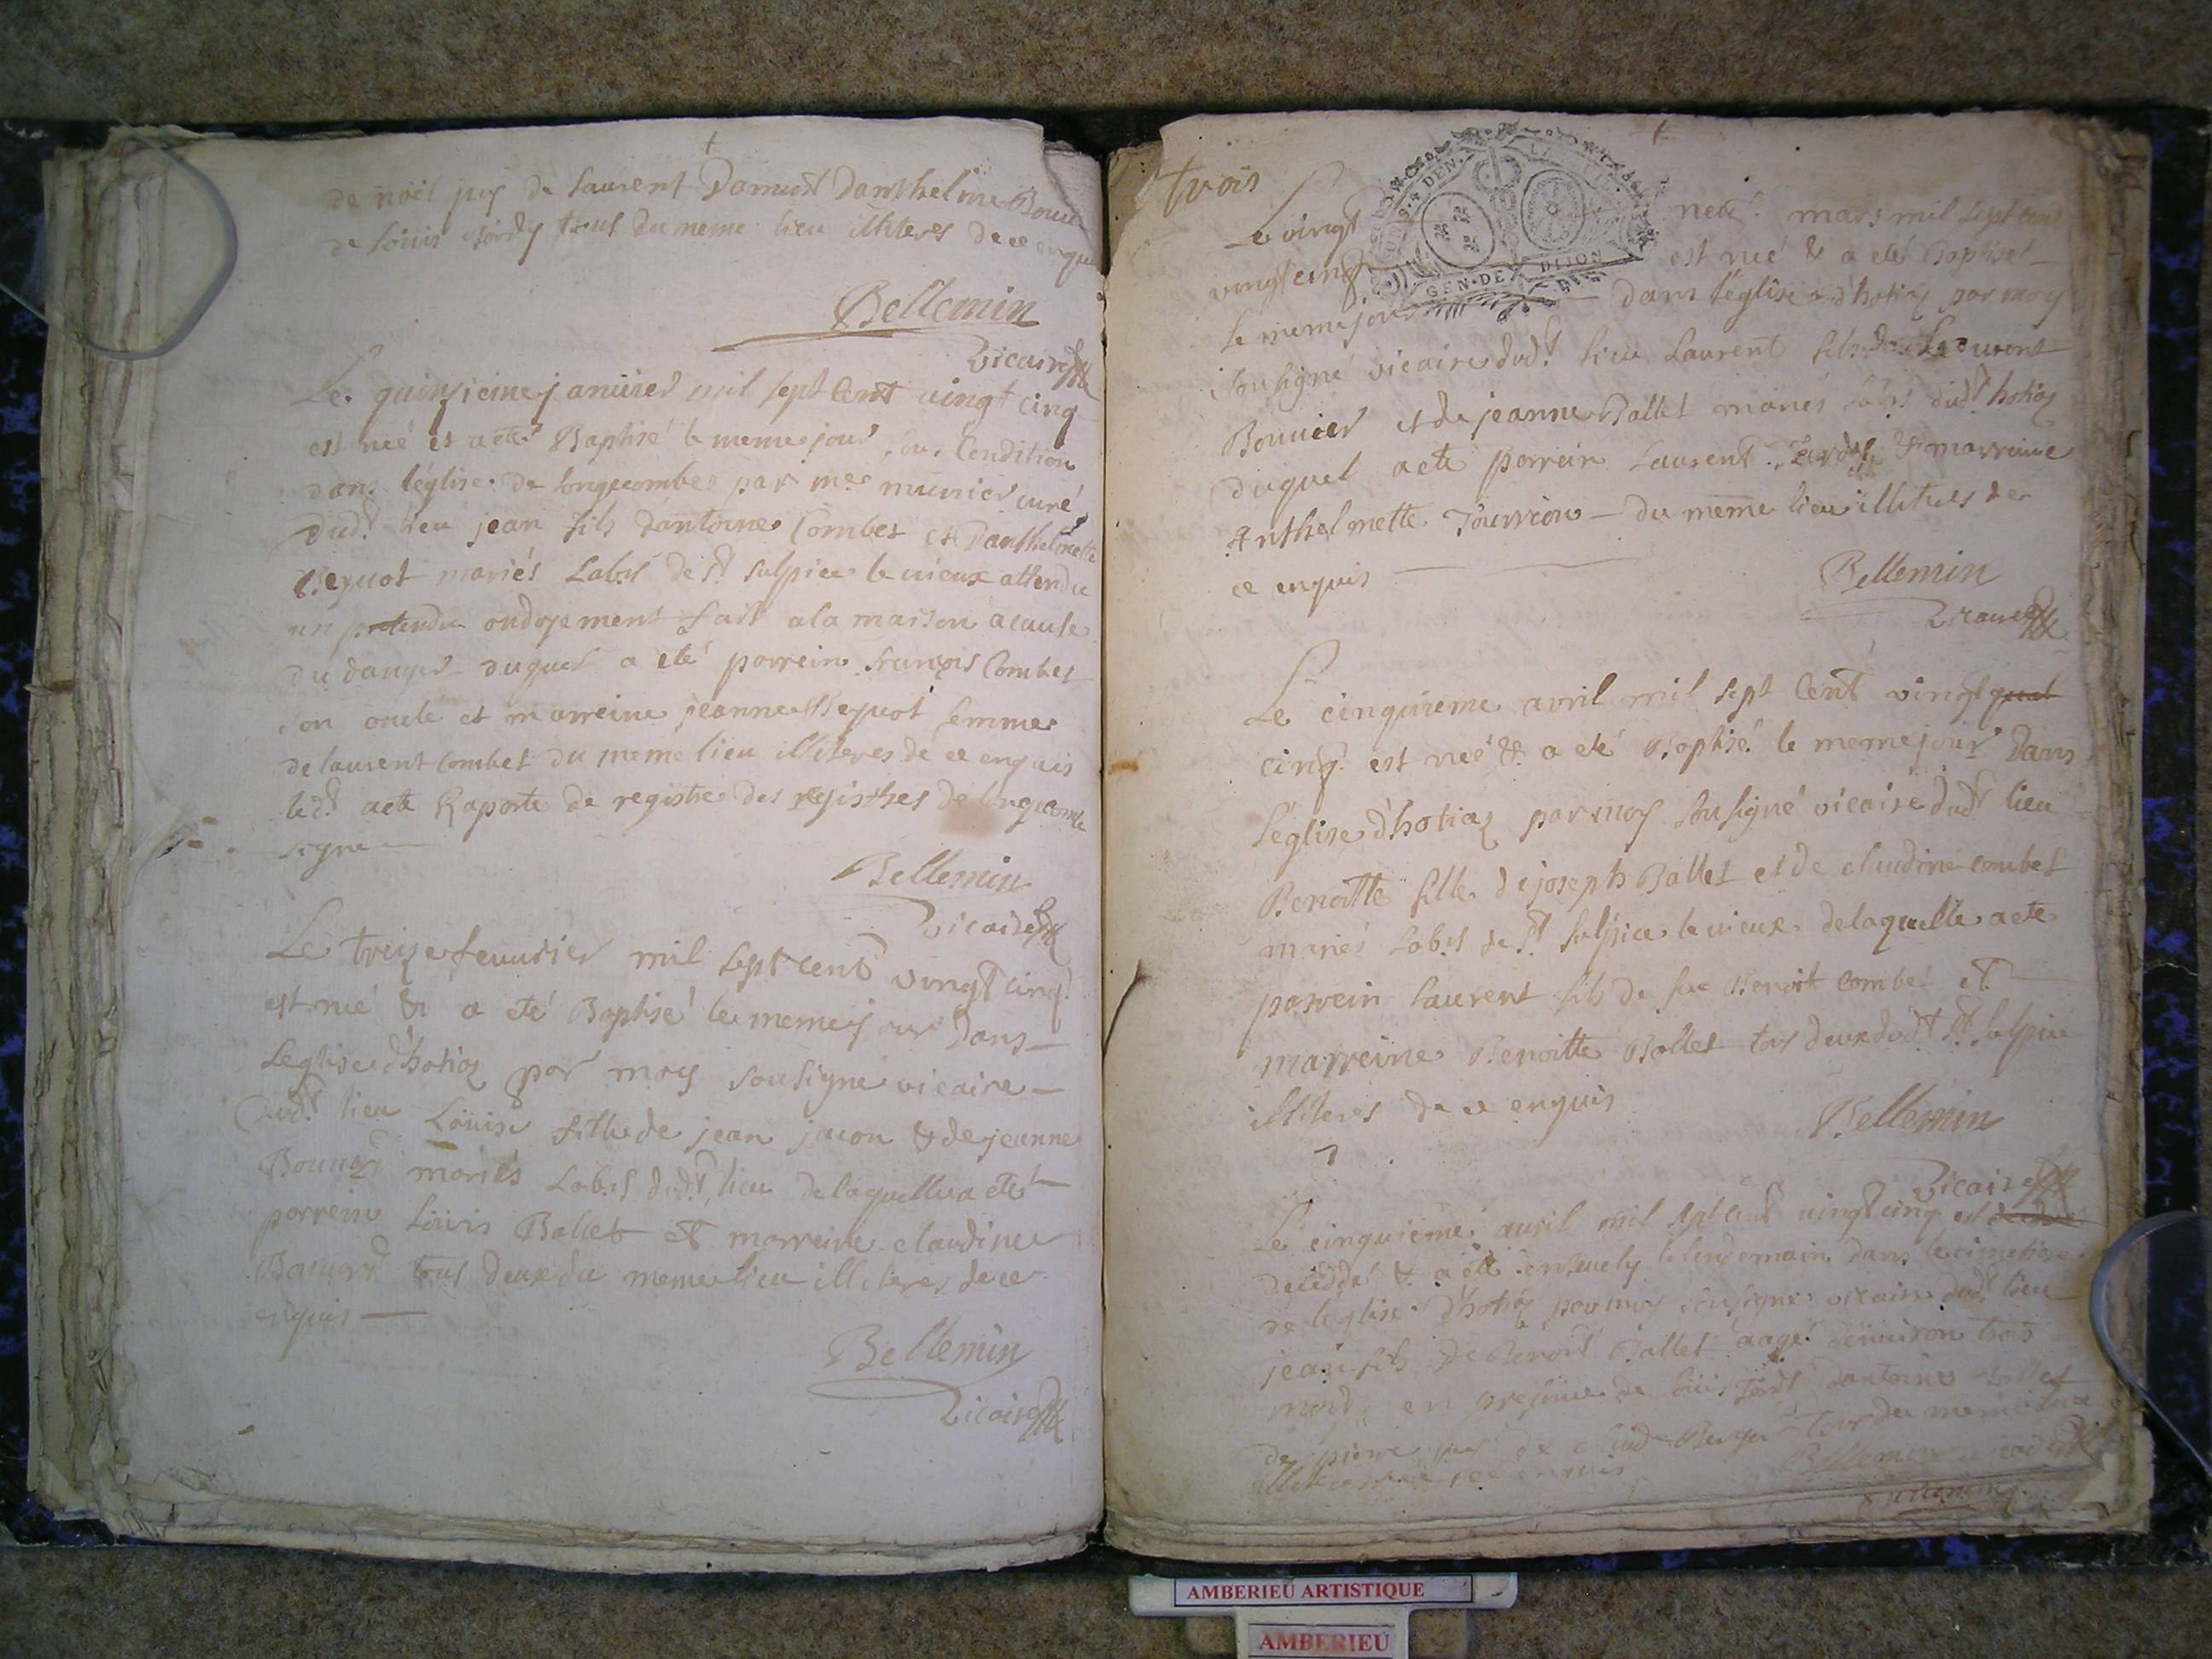 de nöel juy de laurent Danthelme
de Loüis tous du meme lieu illiteres de ce enquis
Bellemin
vicaire
Le quinzieme januier mil sept cent uingt cinq
est née et a eté Baptisé le meme jour sous Condition
dans l'église de longecombe par mre munier curé
dudt lieu jean fils dantoine Combet et Danthelmette
mariés Labrs de St sulpice le uieux attendu
un pretendu ondoyement fait a la maison a cause
du danger duquel a eté parrein françois Combet
son oncle et marreine jeanne femme
de laurent Combet du meme lieu illiteres de ce enquis
ledt acte Raporte de registre des registres de longecombe
signe
Bellemin
vicaire
Le treize feuurier mil sept cent vingt cinq
est née & a eté Baptisé le meme jour dans
Leglise d'hotiaz par moy sousigne vicaire
dudt lieu Loüise fille de jean jacon & de jeanne
mariés Labrs dudt lieu de laquelle a eté
parrein Loüis Ballet et marreine claudine
tous deux du meme lieu illiteres de ce
enquis
Bellemin
vicaire
trois
GEN. DE DIJON
DEN.
Le vingt neuf mars mil sept cent
vingt cinq est née & a eté Baptisé
le meme jour dans l'église d'hotiaz par moy
sousigné vicaire dudt lieu Laurent fils de Laurent
Bouuier et de jeanne Ballet mariés Labrs dudt hotiaz
duquel a eté parrein Laurent & marreine
Anthelmette du meme lieu illiteres de
ce enquis
Bellemin
vicaire
Le cinquieme avril mil sept Cent vingt quat
cinq est née & a eté Baptisé le meme jour dans
l'église d'hotiaz par moy sousigné vicaire dudt lieu
Benoitte fille de joseph Ballet et de claudine combet
mariés Labrs de St sulpice le uieux de laquelle a eté
parrein Laurent fils de feu Benoit combet et
marreine Benoitte Ballet tous deux dudt St sulpice
illiteres de ce enquis
Bellemin
vicaire
Le cinquieme auril mil sept cent uingt cinq est
decedé & a eté enseuely le lendemain dans le cimetiere
de l'église d'hotiaz par moy sousigne vicaire dudt lieu
jean fils de Benoit Ballet aagé d'enuiron trois
mois en presence de Loüis dantoine Ballet
de pierre juy de claude tous du meme lieu
illiteres de ce enquis
Bellemin vicaire
Bellemin
AMBERIEU ARTISTIQUE
AMBERIEU